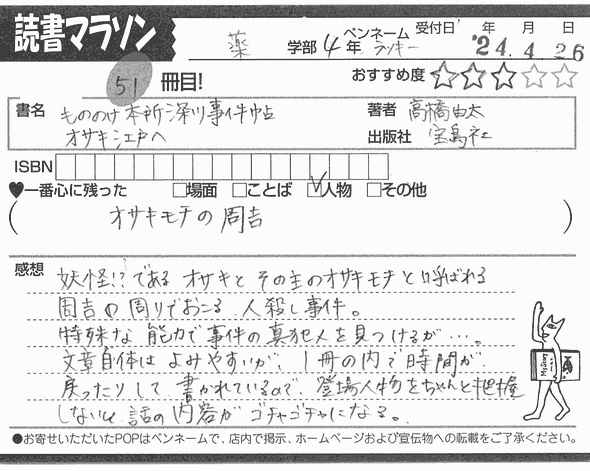 読書マラソン
薬 学部 4 年 ペンネーム ラッキー 受付日 '24年 4月 26日
51 冊目! おすすめ度 ★★★☆☆
書名 もののけ本所深川事件帖 オサキ江戸へ
著者 高橋由太
出版社 宝島社
ISBN
♥一番心に残った □場面 □ことば ☑人物 □その他
(オサキモチの周吉)
感想
妖怪!?であるオサキとその主のオサキモチと呼ばれる
周吉の周りでおこる人殺し事件。
特殊な能力で事件の真犯人を見つけるが…。
文章自体はよみやすいが、1冊の内で時間が
戻ったりして書かれているので、登場人物をちゃんと把握
しないと話の内容がゴチャゴチャになる。
●お寄せいただいたPOPはペンネームで、店内で掲示、ホームページおよび宣伝物への転載をご了承ください。